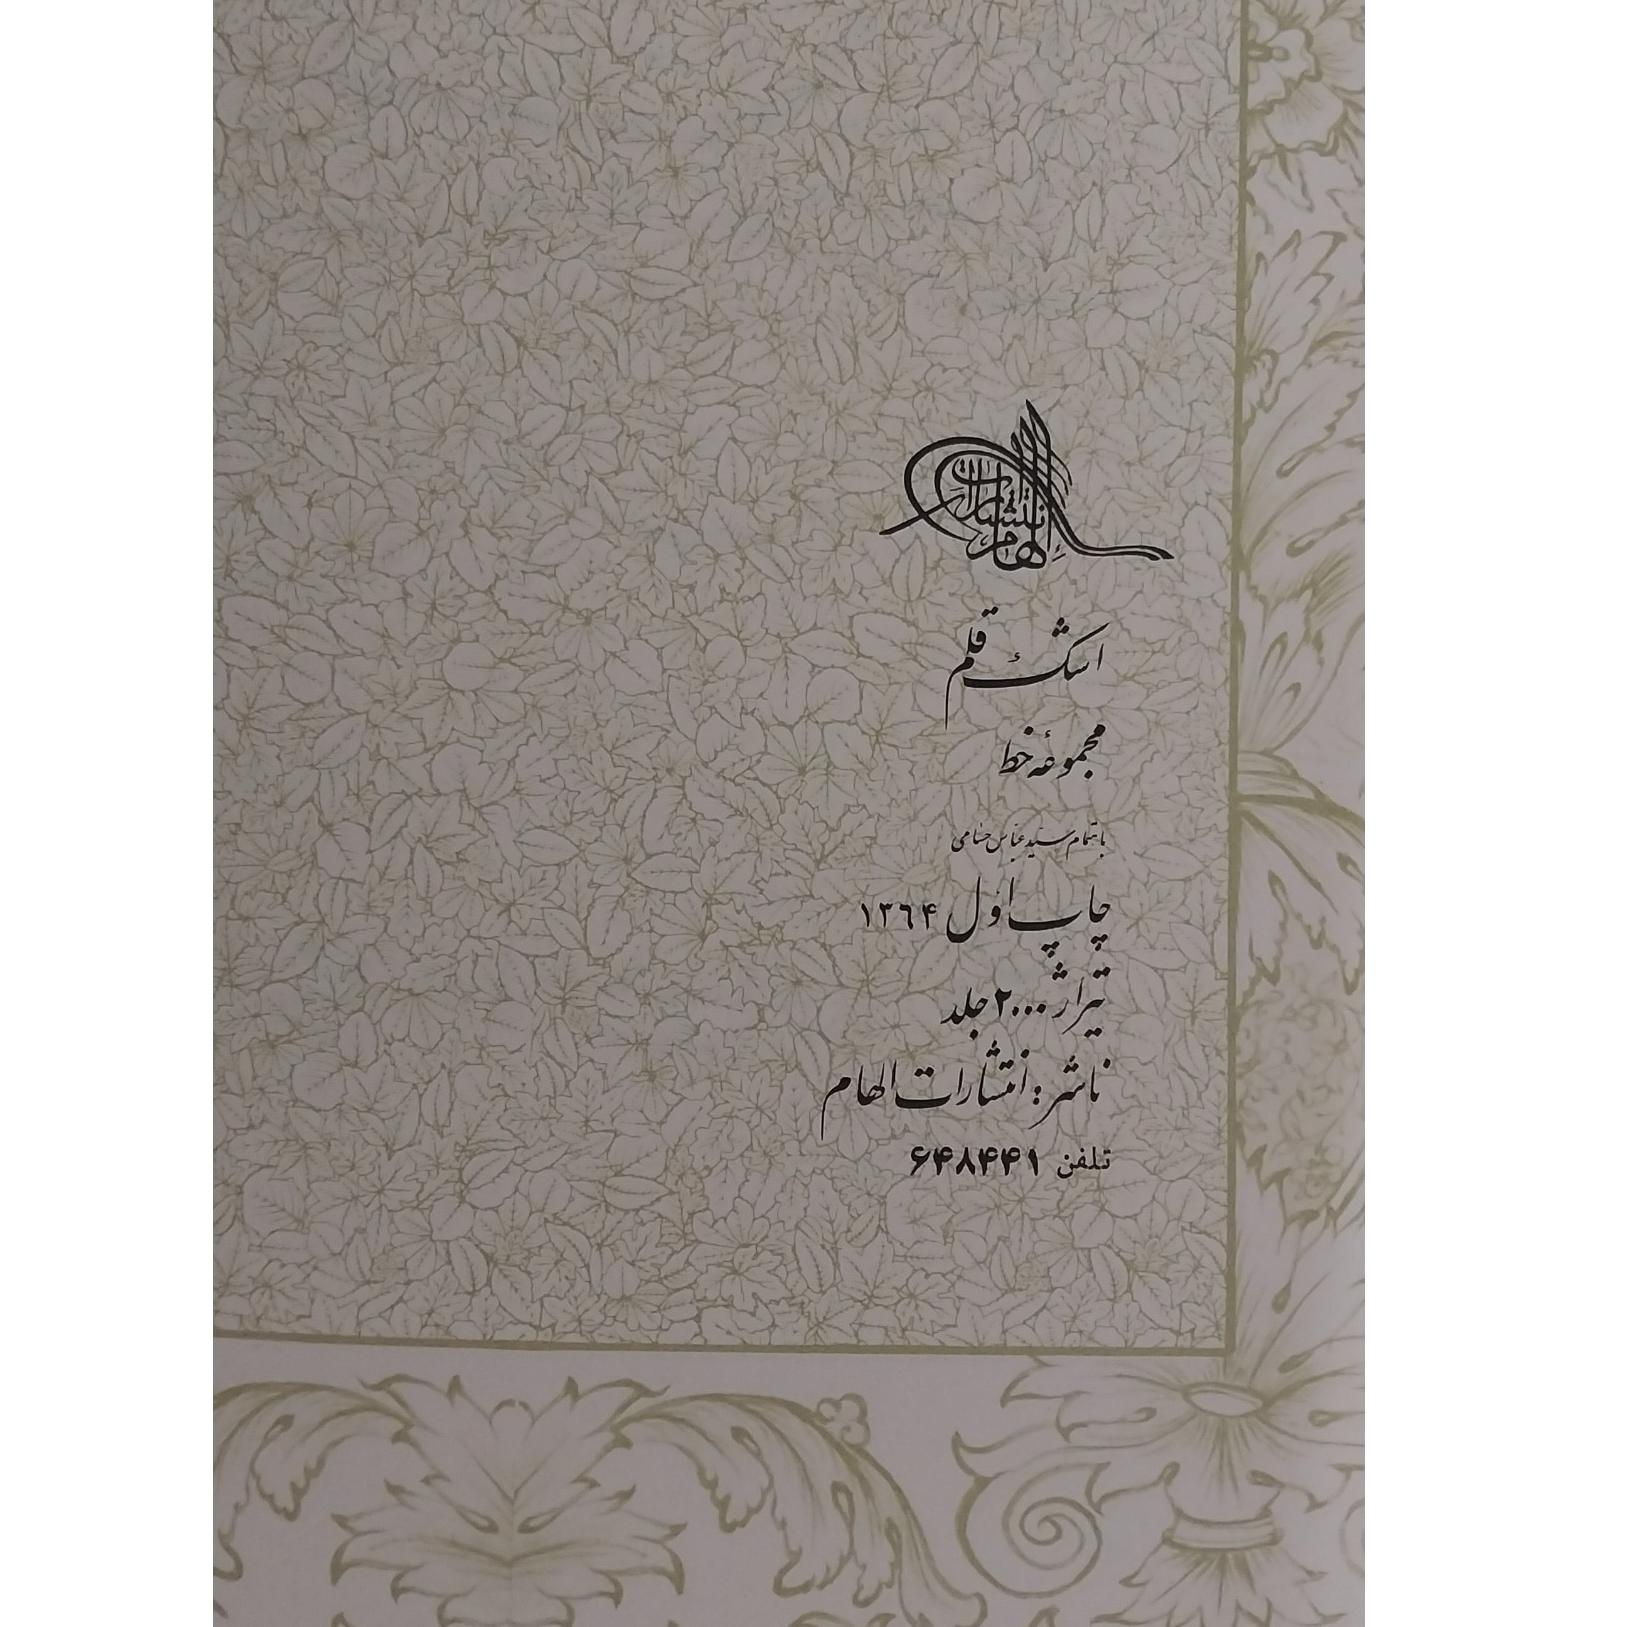 انتشارات
الهام
اشک قلم
مجموعهٔ خط
باهتمام سید عباس حسامی
چاپ اول ۱۳۶۴
تیراژ ۲۰۰۰ جلد
ناشر: انتشارات الهام
تلفن ۶۴۸۴۴۱